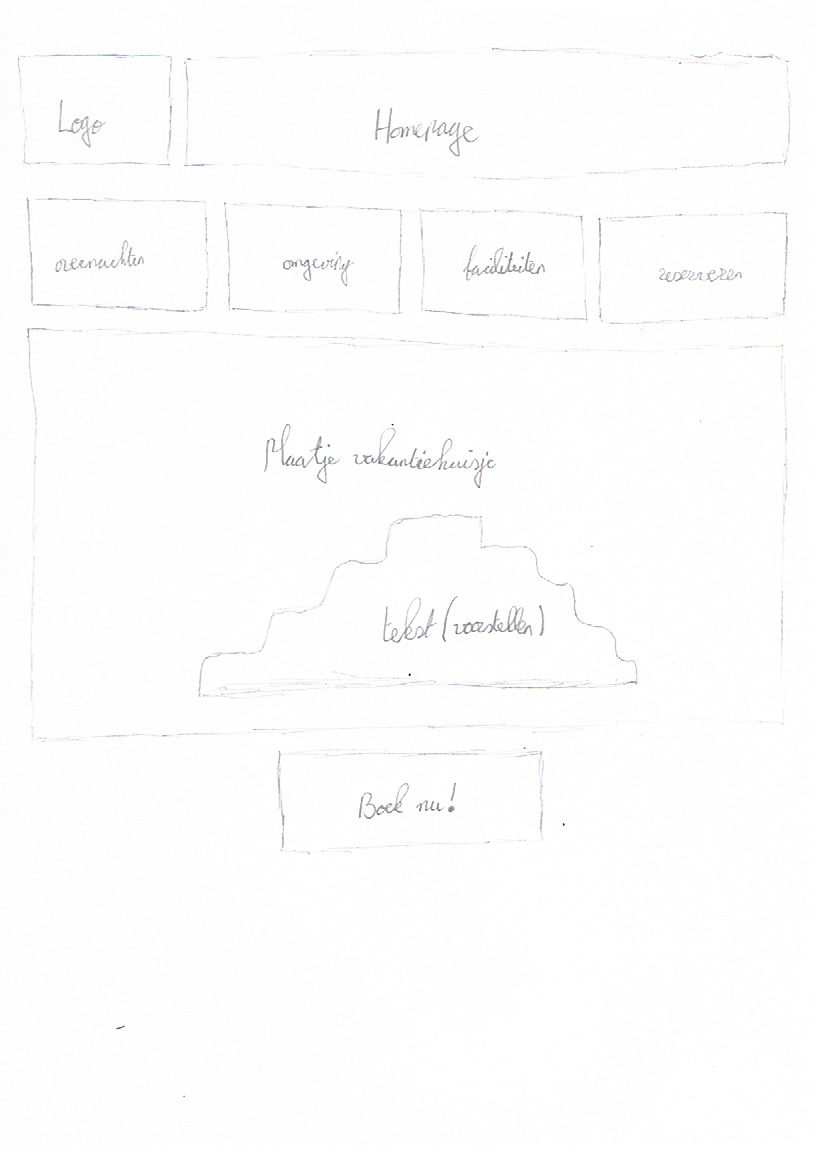 Logo
Homepage
overnachten
omgeving
faciliteiten
reserveren
Plaatje vakantiehuisje
tekst (voorstellen)
Boek nu!